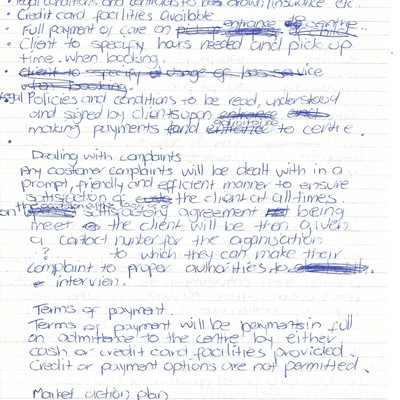 • Legal conditions and contracts to be drawn / insurance etc.
• Credit card facilities available
• Full payment of care on entrance to centre.
• Client to specify hours needed and pick up
time when booking.
• client to specify usage of service
when booking.
Legal Policies and conditions to be read, understood
and signed by clients upon entrance
making payments and admittance to centre.
•
Dealing with complaints
Any customer complaints will be dealt with in a
prompt, friendly and efficient manner to ensure
satisfaction of the client at all times.
on the satisfactory agreement not being
meet the client will be then given
a contact number for the organisation
? to which they can make their
complaint to proper authorities to
interview.
Terms of payment.
Terms of payment will be payments in full
on admittance to the centre by either
cash or credit card facilities provided.
Credit or payment options are not permitted.
Market action plan